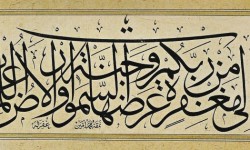 الى مغفرة من ربكم وجنة عرضها السموات والارض